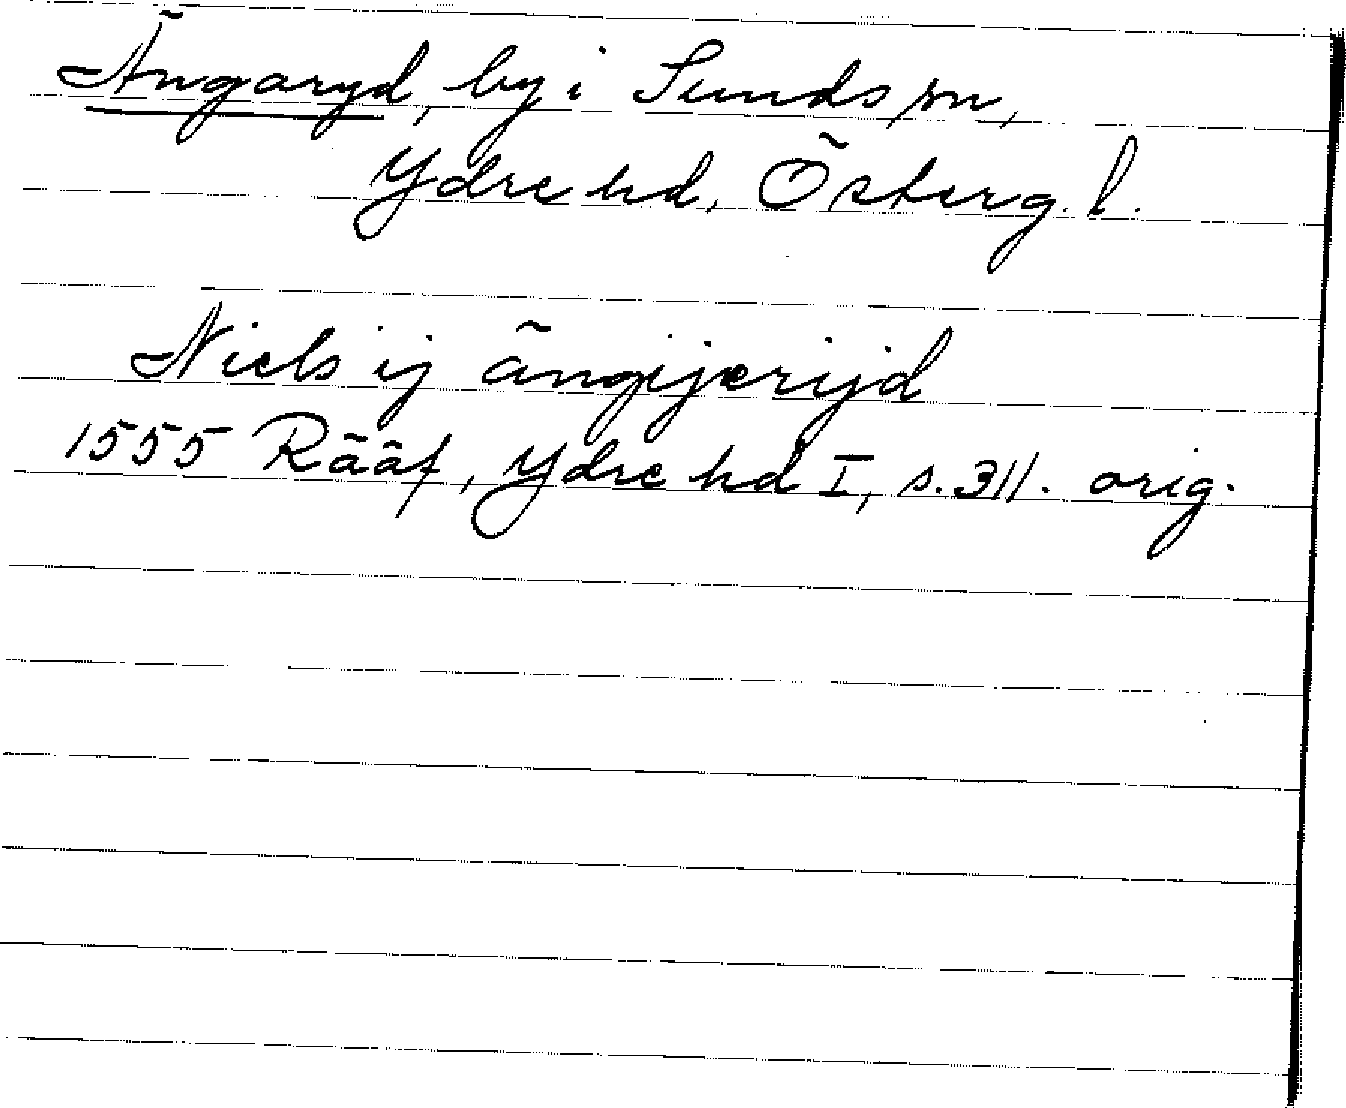 Ängaryd, by i Sunds sn,
Ydre hd, Österg. l.
Niels ij ängijerijd
1555 Rääf, Ydre hd I, s. 311. orig.